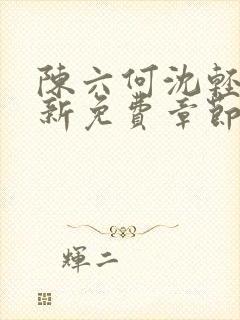 陳六何沈輕
新免費章節
輝二